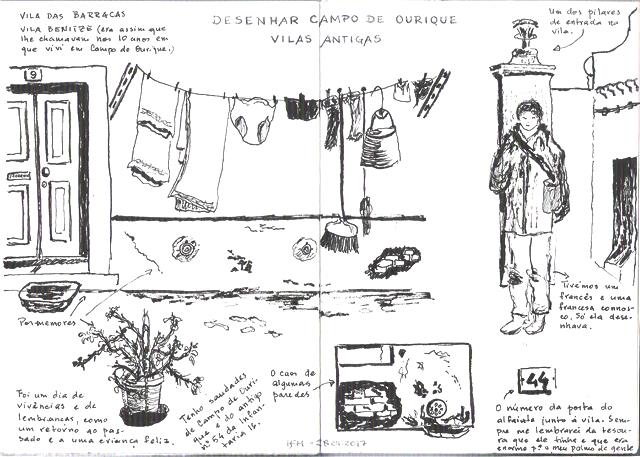 VILA DAS BARRACAS
VILA BENITZE (era assim que
lhe chamavam nos 10 anos em
que vivi em Campo de Ourique.)
DESENHAR CAMPO DE OURIQUE
VILAS ANTIGAS
Um dos pilares
de entrada na
vila.
9
Pormenores
Tivemos um
francês e uma
francesa connos-
co. Só ela dese-
nhava.
Foi um dia de
vivências e de
lembranças, como
um retorno ao pas-
sado e a uma criança feliz.
Tenho saudades
de Campo de Ouri-
que e do antigo
nº 54 da Infan-
taria 16.
O caos de
algumas
paredes
44
O número da porta do
alfaiate junto à vila. Sem-
pre me lembrarei da tesou-
ra que ele tinha e que era
enorme p.ª o meu palmo de gente